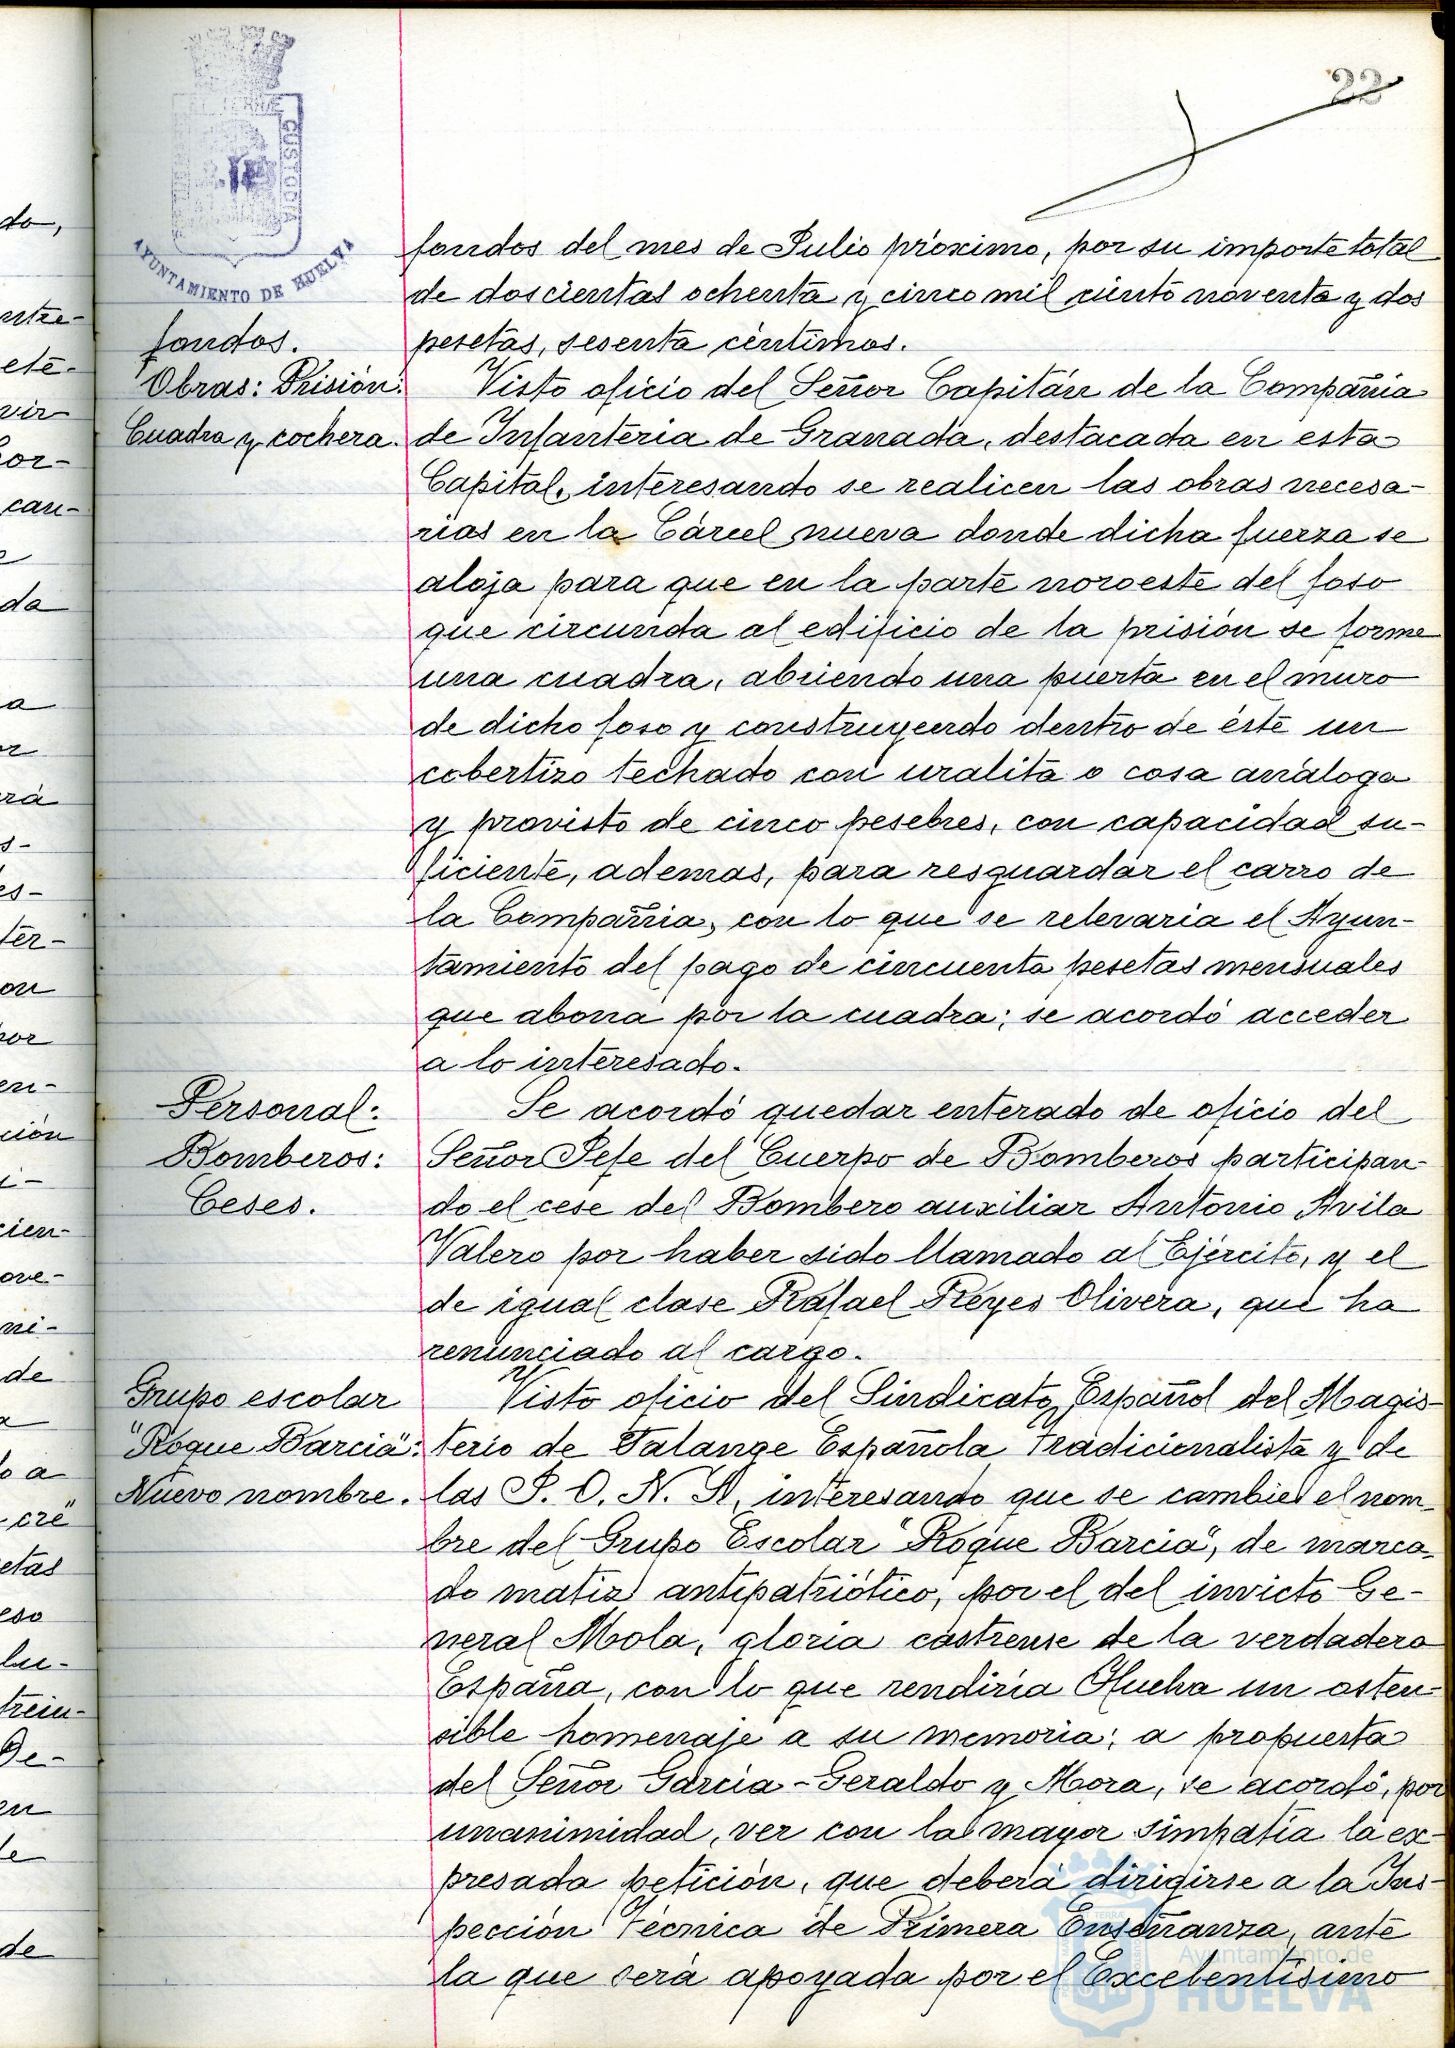 22
PORTUS MARIS ET TERRÆ CUSTODIA
AYUNTAMIENTO DE HUELVA
fondos.
Obras: Prisión:
Cuadra y cochera.
fondos del mes de Julio próximo, por su importe total
de doscientas ochenta y cinco mil ciento noventa y dos
pesetas, sesenta céntimos.
Visto oficio del Señor Capitán de la Compañia
de Infanteria de Granada, destacada en esta
Capital, interesando se realicen las obras necesa-
rias en la Cárcel nueva donde dicha fuerza se
aloja para que en la parte noroeste del foso
que circunda al edificio de la prisión se forme
una cuadra, abriendo una puerta en el muro
de dicho foso y construyendo dentro de éste un
cobertizo techado con uralita o cosa análoga
y provisto de cinco pesebres, con capacidad su-
ficiente, ademas, para resguardar el carro de
la Compañia, con lo que se relevaria el Ayun-
tamiento del pago de cincuenta pesetas mensuales
que abona por la cuadra; se acordó acceder
a lo interesado.
Personal:
Bomberos:
Ceses.
Se acordó quedar enterado de oficio del
Señor Jefe del Cuerpo de Bomberos participan-
do el cese del Bombero auxiliar Antonio Avila
Valero por haber sido llamado al Ejército, y el
de igual clase Rafael Reyes Olivera, que ha
renunciado al cargo.
Grupo escolar
"Roque Barcia":
Nuevo nombre.
Visto oficio del Sindicato Español del Magis-
terio de Falange Española Tradicionalista y de
las J. O. N. S., interesando que se cambie el nom-
bre del Grupo Escolar "Roque Barcia", de marca-
do matiz antipatriótico, por el del invicto Ge-
neral Mola, gloria castrense de la verdadera
España, con lo que rendiria Huelva un osten-
sible homenaje a su memoria; a propuesta
del Señor Garcia-Geraldo y Mora, se acordó, por
unanimidad, ver con la mayor simpatia la ex-
presada petición, que deberá dirigirse a la Ins-
pección Técnica de Primera Enseñanza, ante
la que será apoyada por el Excelentísimo
Ayuntamiento de
HUELVA